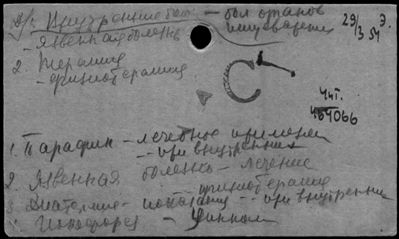 Внутренние бол. – бол. органов пищеварения
29/3 54
Э.
– Язвенная болезнь
2. Терапия
– физиотерапия
С
Чит.
464066
1. Парафин – лечебное применен.
– при внутренних
2. Язвенная болезнь – лечение
– физиотерапия
3. Диатермия – показания – при внутренние
4. Ионофорез – цинком